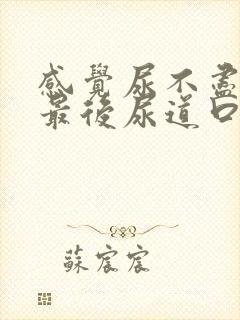 感覺尿不盡
最後尿道口
蘇宸宸